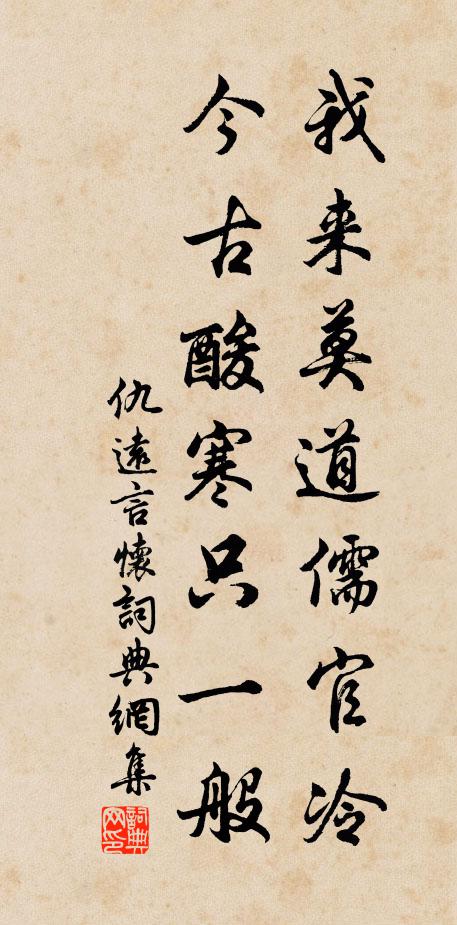 我来莫道儒官冷
今古酸寒只一般
仇遠言懷詞典網集
詞典網印